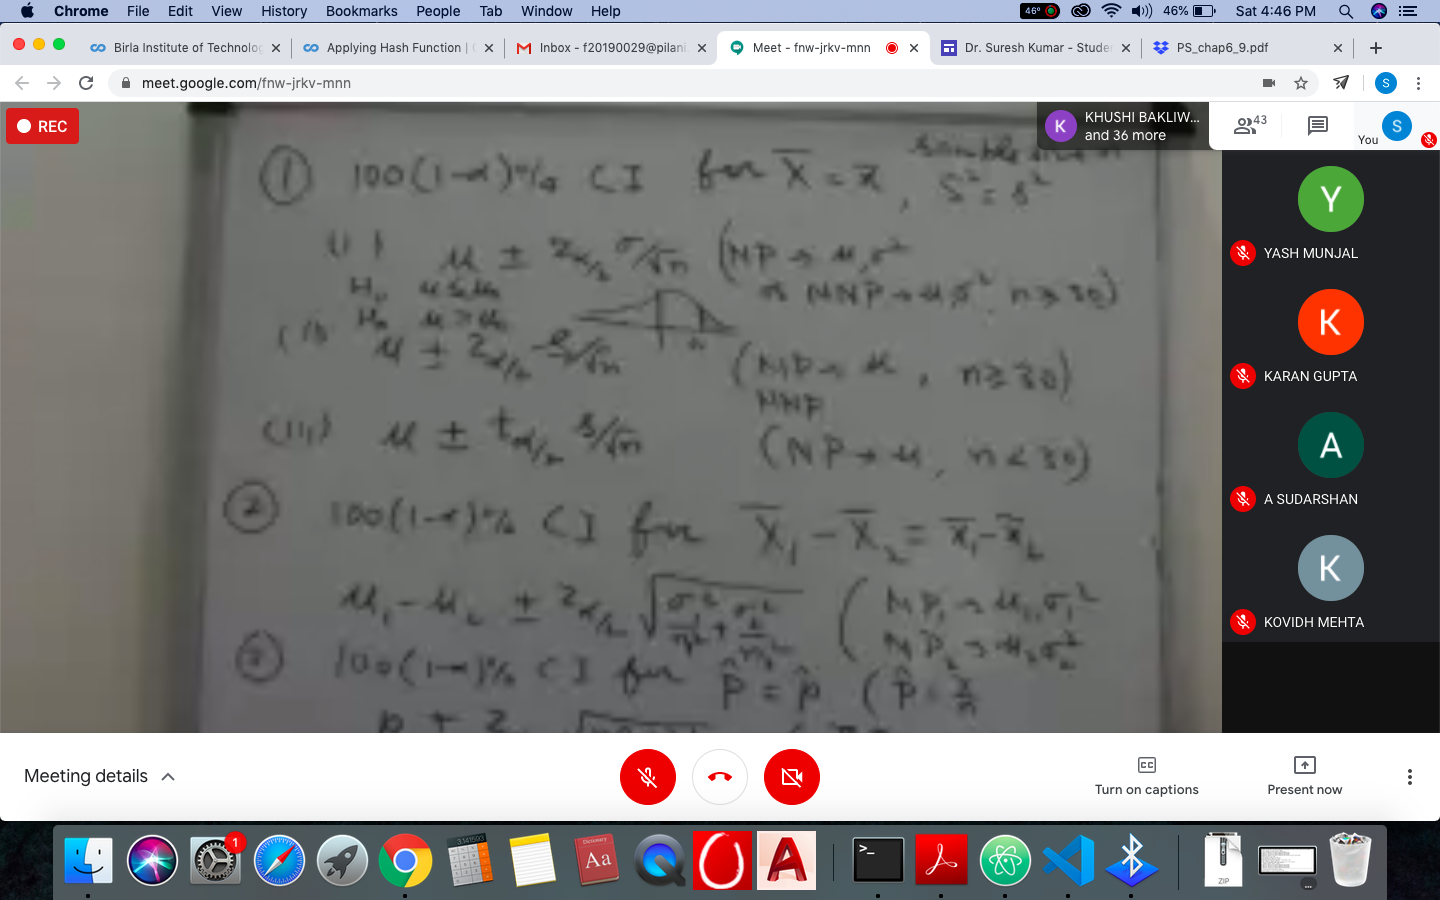 Chrome File Edit View History Bookmarks People Tab Window Help 46° 46% Sat 4:46 PM
Birla Institute of Technolog Applying Hash Function | Inbox - f20190029@pilani Meet - fnw-jrkv-mnn Dr. Suresh Kumar - Stude PS_chap6_9.pdf
meet.google.com/fnw-jrkv-mnn S
REC
K KHUSHI BAKLIW...
and 36 more
43
You S
① 100(1-α)% CI for X̄ = x̄, S² = s²
μ ± z_{α/2} σ/√n (NP → μ, σ²
H₀ μ ≤ μ₀
or NNP → μ, σ², n ≥ 30)
Hₐ μ > μ₀
μ ± z_{α/2} s/√n (NP → μ, n ≥ 30)
NNP
(iii) μ ± t_{α/2} s/√n (NP → μ, n < 30)
② 100(1-α)% CI for X̄₁ - X̄₂ = x̄₁ - x̄₂
μ₁ - μ₂ ± z_{α/2} (NP₁ → μ₁, σ₁²
NP₂ → μ₂, σ₂²
100(1-α)% CI for p̂ = p̂ (p̂ = x/n
Y
YASH MUNJAL
K
KARAN GUPTA
A
A SUDARSHAN
K
KOVIDH MEHTA
Meeting details
Turn on captions
Present now
1
3.141593
Dictionary
Aa
>_
ZIP